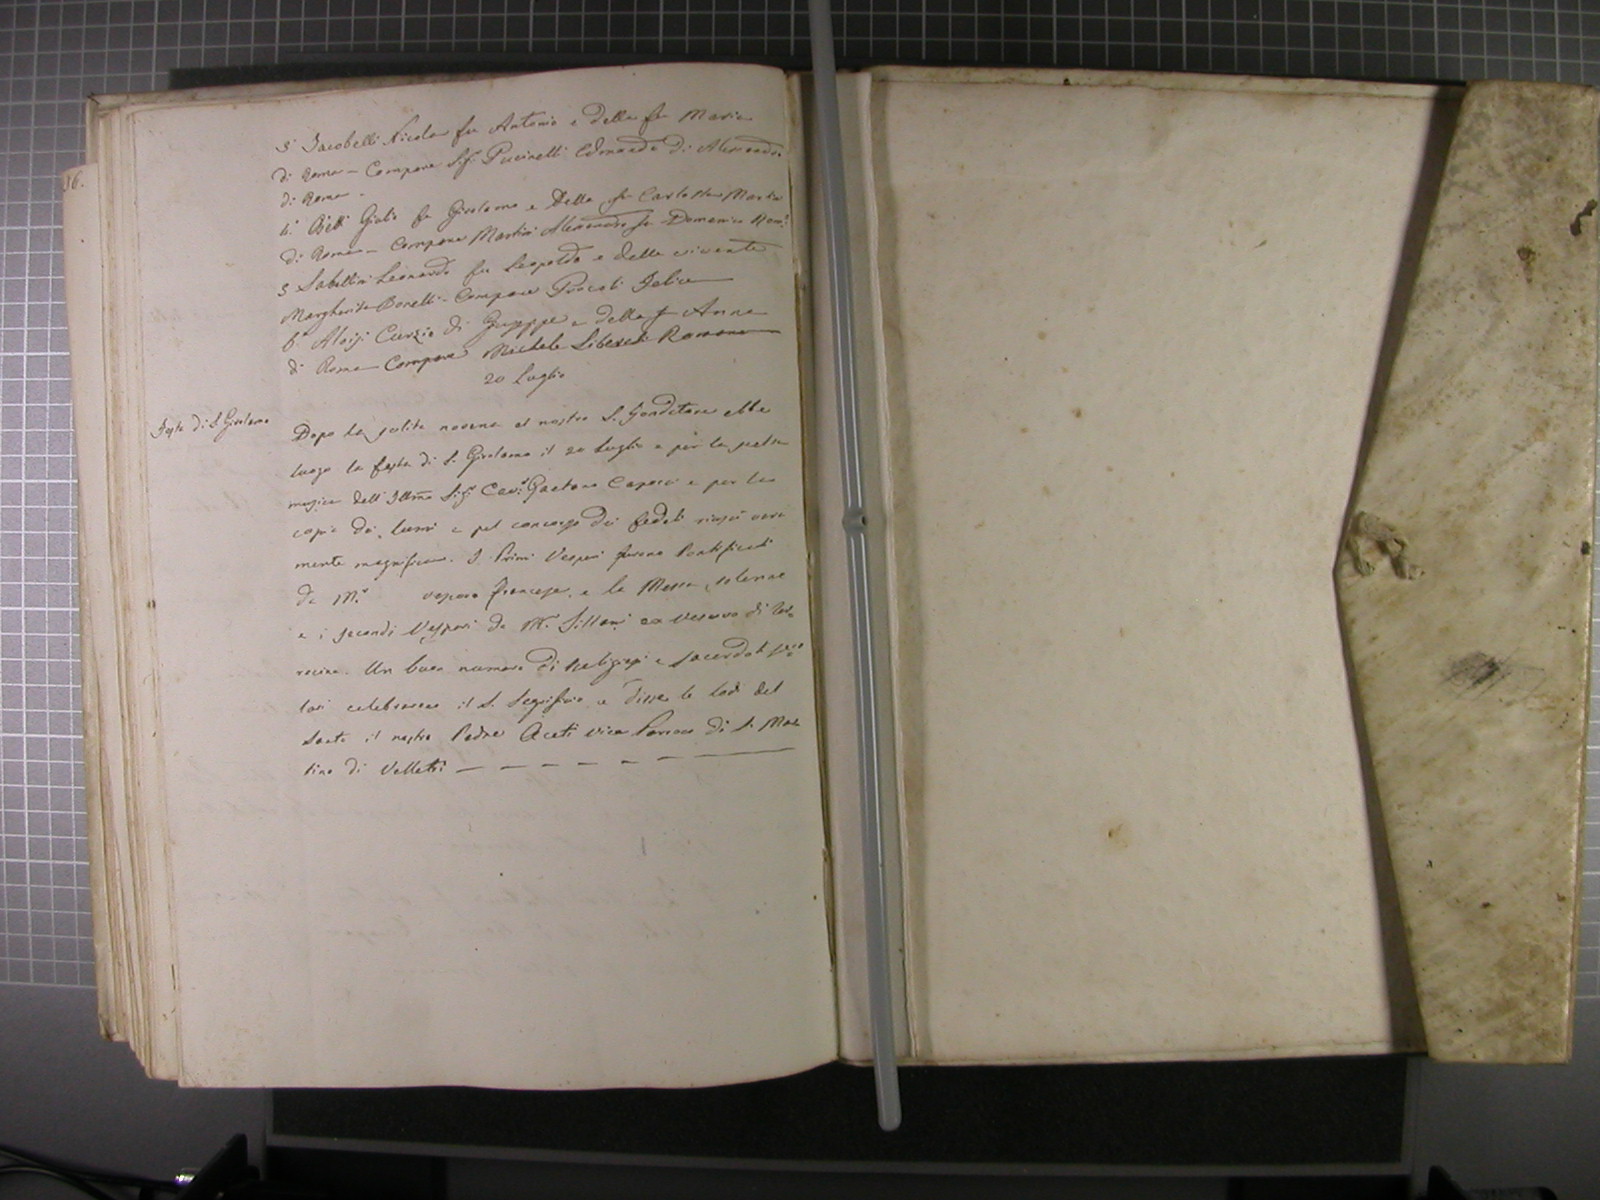 16.
3° Jacobelli Nicola fu Antonio e della fu Maria
di Roma — Compare Sig. Pucinelli Edmondo di Alessandro
di Roma -
4° Betti Giulio fu Girolamo e Della fu Carlotta Martin
di Roma — Compare Martini Alessandro fu Domenico Rom.°
5 Sabellini Leonardo fu Leopoldo e della vivente
Margherita Bonelli - Compare Felice
6° Aloisi Curzio di Giuseppe e della fu Anna
di Roma Compare Michele Liberati Romano
20 Luglio
Festa di S. Girolamo
Dopo la solita novena al nostro S. Fondatore ebbe
luogo la festa di S. Girolamo il 20 Luglio e per la scelta
musica dell'Illmo Sig. Cav. Gaetano Capocci e per la
copia dei lumi e pel concorso dei fedeli riuscì vera
mente magnifica. I Primi Vesperi furono Pontificati
da M.r vescovo francese, e la Messa solenne
e i secondi Vesperi da M.r Sillani ex vescovo di Ter=
racina. Un buon numero di Religiosi e sacerdoti seco=
lari celebrarono il S. Segrifizio e disse le lodi del
Santo il nostro Padre Aceti vice Parroco di S. Mar
tino di Velletri — — — — — —